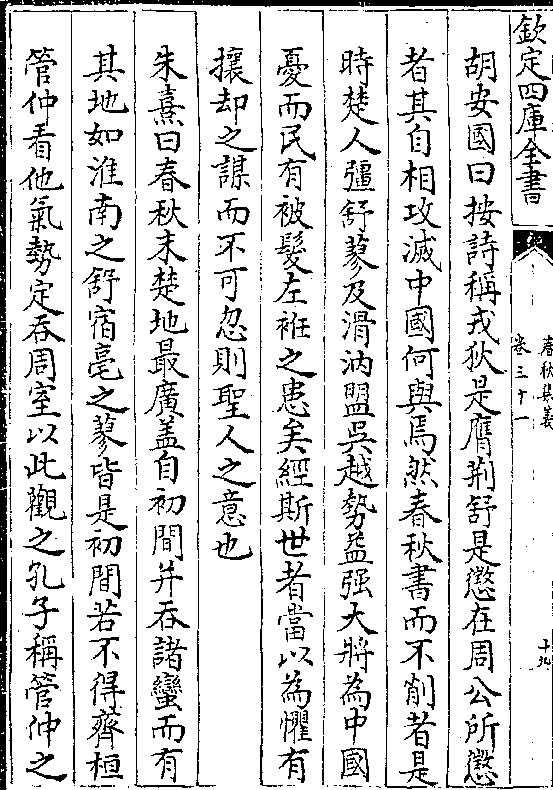 欽定四庫全書
春秋集義
卷三十一
十九
胡安國曰按詩稱戎狄是膺荆舒是懲在周公所懲
者其自相攻滅中國何與焉然春秋書而不削者是
時楚人彊舒蓼及滑汭盟吳越勢益强大將為中國
憂而民有被髮左袵之患矣經斯世者當以為懼有
攘却之謀而不可忽則聖人之意也
朱熹曰春秋末楚地最廣盖自初間并吞諸蠻而有
其地如淮南之舒宿亳之蓼皆是初間若不得齊桓
管仲看他氣勢定吞周室以此觀之孔子稱管仲之